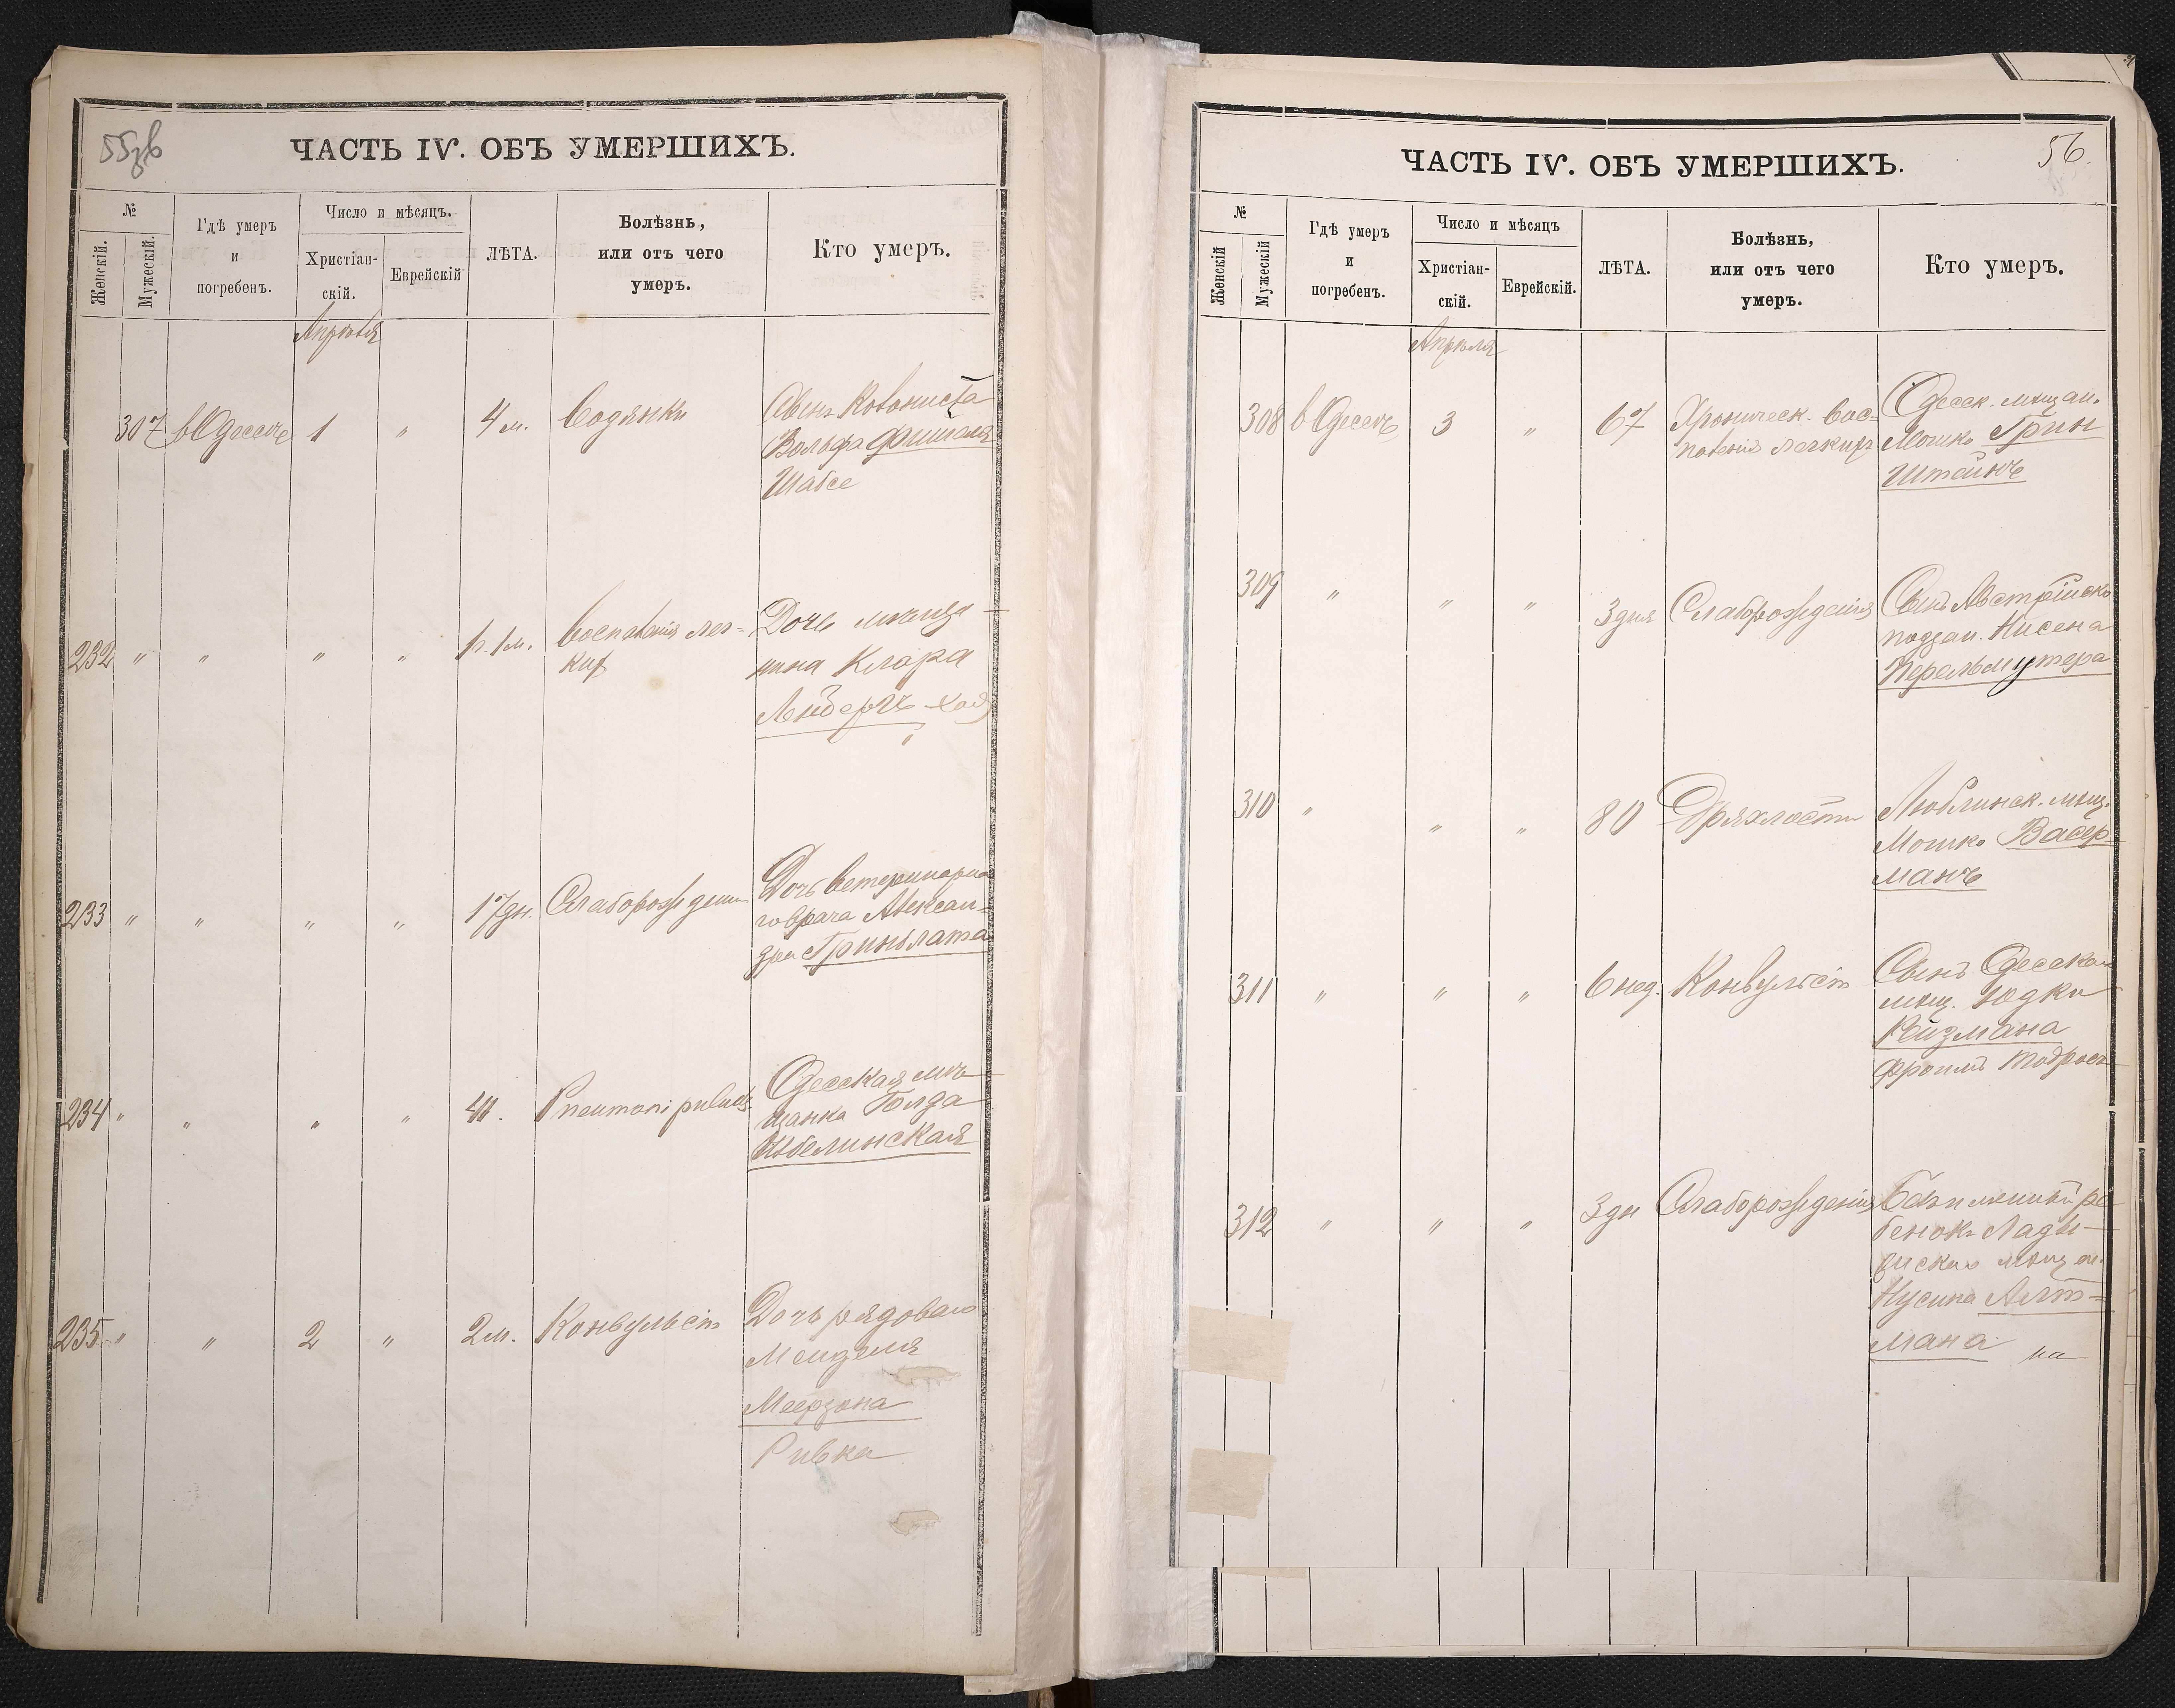 55зв
ЧАСТЬ IV. ОБЪ УМЕРШИХЪ.
№
Женскій.
Мужескій.
Гдѣ умеръ
и
погребенъ.
Число и мѣсяцъ.
Христіан-
скій.
Еврейскій
ЛѢТА.
Болѣзнь,
или отъ чего
умеръ.
Кто умеръ.
Апрѣля
307 в Одессѣ 1 " 4 м. Водянки Сынъ Колониста
Вольфа Фишеля
Шабсе
232 " " " " 1 м. Воспаленія лег-
кихъ
Дочь мѣща-
нина Клара
233 " " " " 17 дн. Слаборожденія Дочь ветеринарна
го врача Алексан-
дра Гринблата
234 " " " " 40. Pneumoni Одесская мѣ-
щанка Голда
235 " " 2 " 2 м. Конвульсіи Дочь рядоваго
Менделя
Меерзона
Ривка
56.
ЧАСТЬ IV. ОБЪ УМЕРШИХЪ.
№
Женскій
Мужескій
Гдѣ умеръ
и
погребенъ.
Число и мѣсяцъ
Христіан-
скій.
Еврейскій.
ЛѢТА.
Болѣзнь,
или отъ чего
умеръ.
Кто умеръ.
Апрѣля
308 в Одессѣ 3 " 67 Хроническ. вос-
паленія легкихъ
Одесск. мѣщан.
Мошко Грин
Штейнъ
309 " " " 3 дня Слаборожденія Сынъ Австрійск.
поддан. Нисена
Перельмутера
310 " " " 80 Дряхлости Люблинск. мѣщ.
Мошко Васер-
манъ
311 " " " 6 нед. Конвульсіи Сынъ Одесскаго
мѣщ. Юдки
Ройзмана
Фроимъ Тодросъ
312 " " " 3 дн Слаборожденія Безъименный ре
бенокъ Лады-
жинскаго мѣщан.
Нусина Алт-
мана